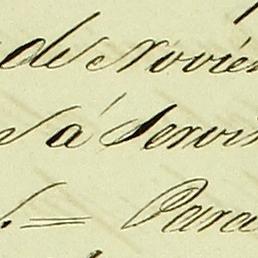 de Novié
á Servi
= Para